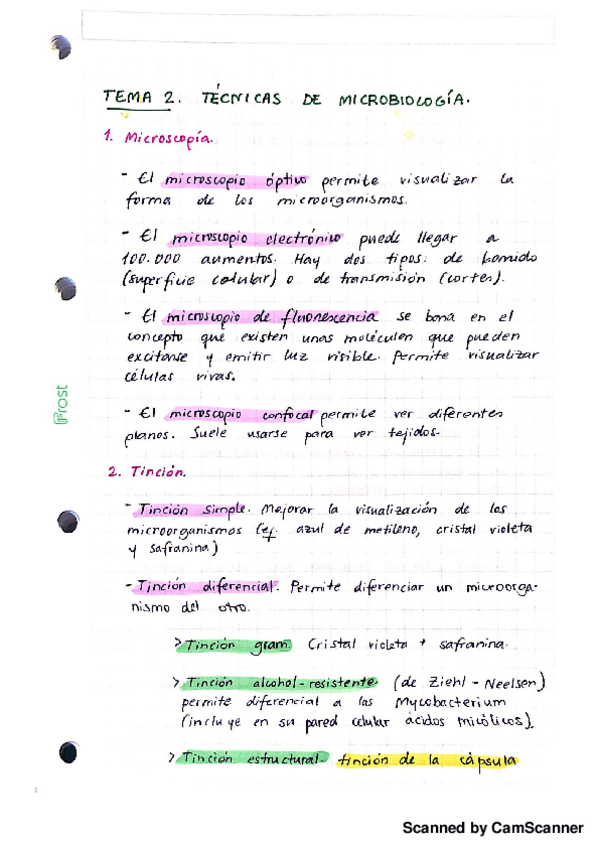 TEMA 2. TÉCNICAS DE MICROBIOLOGÍA.
1. Microscopía.
- El microscopio óptivo permite visualizar la
forma de los microorganismos.
- El microscopio electrónico puede llegar a
100.000 aumentos. Hay dos tipos: de barrido
(superficie celular) o de transmisión (cortes).
- El microscopio de fluorescencia se basa en el
concepto que existen unas moléculas que pueden
excitarse y emitir luz visible. Permite visualizar
células vivas.
- El microscopio confocal permite ver diferentes
planos. Suele usarse para ver tejidos.
Prost
2. Tinción.
- Tinción simple. Mejorar la visualización de los
microorganismos (ej. azul de metileno, cristal violeta
y safranina)
- Tinción diferencial. Permite diferenciar un microorga-
nismo del otro.
> Tinción gram. Cristal violeta + safranina.
> Tinción alcohol-resistente (de Ziehl-Neelsen)
permite diferencial a las Mycobacterium
(incluye en su pared celular ácidos micólicos).
> Tinción estructural. tinción de la cápsula
Scanned by CamScanner